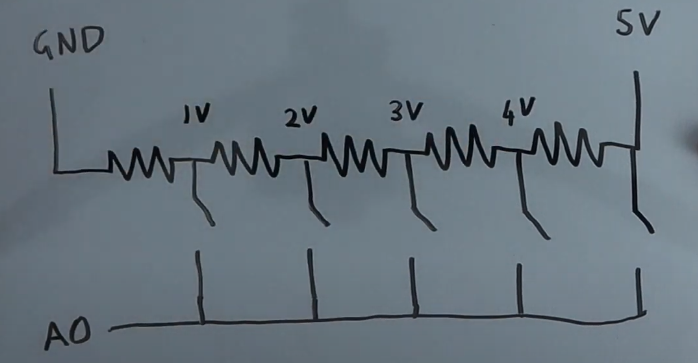 GND
5V
1V
2V
3V
4V
A0